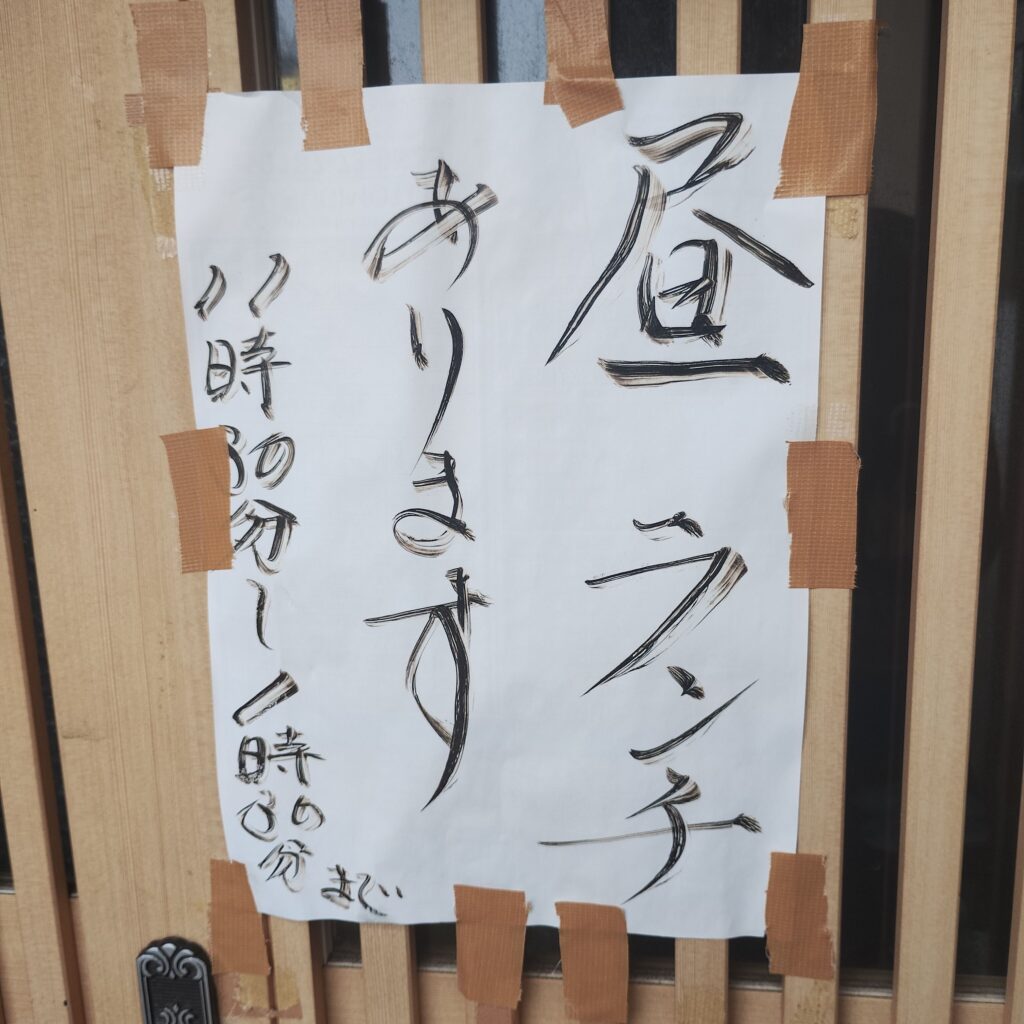 昼ランチ
あります
11時30分〜1時30分まで